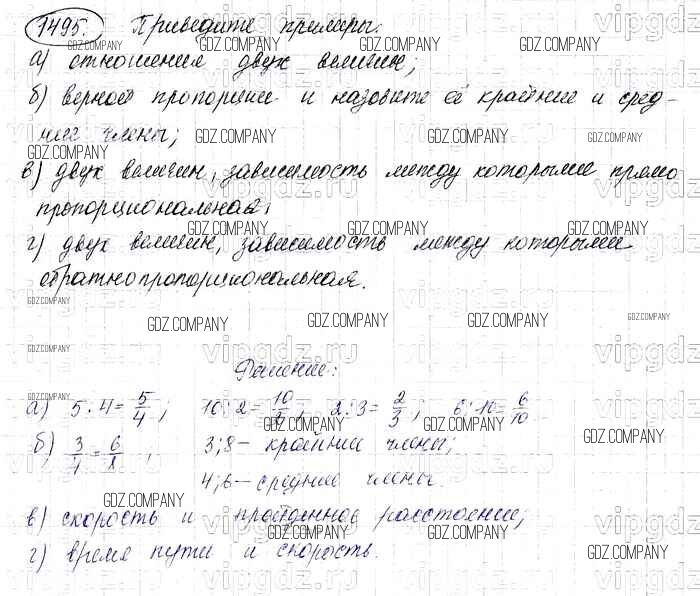 1495. Приведите примеры:
а) отношения двух величин;
б) верной пропорции и назовите её крайние и сред-
ние члены;
в) двух величин, зависимость между которыми прямо
пропорциональная;
г) двух величин, зависимость между которыми
обратно пропорциональная.
Решение:
а) 5 : 4 = 5/4 ; 10 : 2 = 10/2 ; 2 : 3 = 2/3 ; 6 : 10 = 6/10.
б) 3/4 = 6/8 , 3; 8 – крайние члены;
4; 6 – средние члены.
в) скорость и пройденное расстояние;
г) время пути и скорость.
GDZ.COMPANY
vipgdz.ru